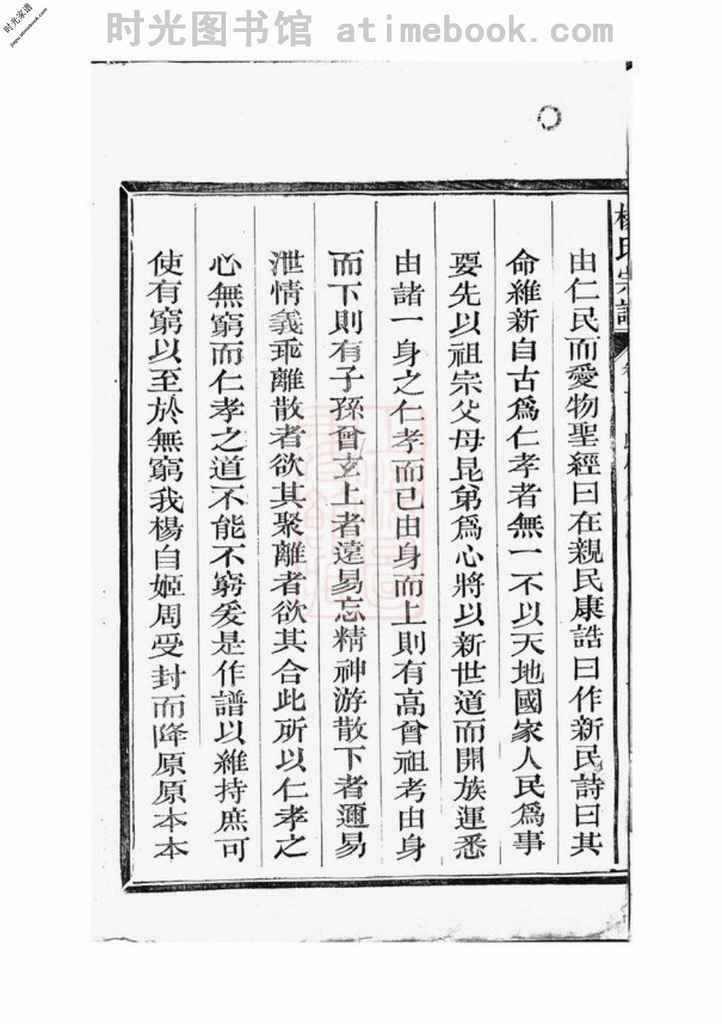 时光图书馆 atimebook.com
时光家谱
jiapu.atimebook.com
楊氏宗譜
由仁民而愛物聖經曰在親民康誥曰作新民詩曰其
命維新自古爲仁孝者無一不以天地國家人民爲事
要先以祖宗父母昆弟爲心將以新世道而開族運悉
由諸一身之仁孝而已由身而上則有高曾祖考由身
而下則有子孫曾玄上者遠易忘精神游散下者邇易
泄情義乖離散者欲其聚離者欲其合此所以仁孝之
心無窮而仁孝之道不能不窮爰是作譜以維持庶可
使有窮以至於無窮我楊自姬周受封而降原原本本